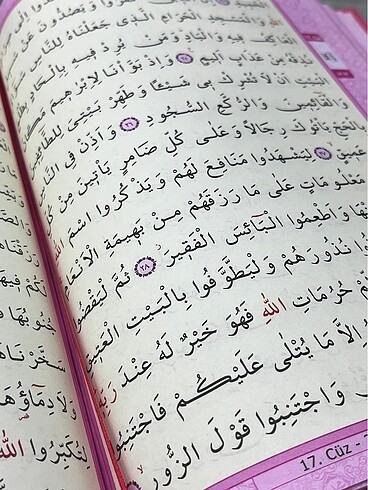 كَفَرُوا وَيَصُدُّونَ عَنْ
وَالْمَسْجِدِ الْحَرَامِ الَّذٖي جَعَلْنَاهُ لِلنَّاسِ
الْعَاكِفُ فٖيهِ وَالْبَادِ وَمَنْ يُرِدْ فٖيهِ بِاِلْحَادٍ
نُذِقْهُ مِنْ عَذَابٍ اَلٖيمٍ ﴿٢٥﴾ وَاِذْ بَوَّأْنَا لِاِبْرٰهٖيمَ
الْبَيْتِ اَنْ لَا تُشْرِكْ بٖي شَيْـًٔا وَطَهِّرْ بَيْتِيَ
وَالْقَائِمٖينَ وَالرُّكَّعِ السُّجُودِ ﴿٢٦﴾ وَاَذِّنْ فِي النَّاسِ
بِالْحَجِّ يَأْتُوكَ رِجَالًا وَعَلٰى كُلِّ ضَامِرٍ يَأْتٖينَ مِنْ
عَمٖيقٍ ﴿٢٧﴾ لِيَشْهَدُوا مَنَافِعَ لَهُمْ وَيَذْكُرُوا اسْمَ اللّٰهِ
مَعْلُومَاتٍ عَلٰى مَا رَزَقَهُمْ مِنْ بَهٖيمَةِ الْاَنْعَامِ
وَاَطْعِمُوا الْبَائِسَ الْفَقٖيرَ ﴿٢٨﴾ ثُمَّ لْيَقْضُوا
نُذُورَهُمْ وَلْيَطَّوَّفُوا بِالْبَيْتِ
حُرُمَاتِ اللّٰهِ فَهُوَ خَيْرٌ لَهُ عِنْدَ
اِلَّا مَا يُتْلٰى عَلَيْكُمْ فَاجْتَنِبُوا
وَاجْتَنِبُوا قَوْلَ الزُّورِ
17. Cüz -
لَكُمْ فٖيهَا
جُنُوبُهَا
وَلَا دِمَاؤُهَا
لِتُكَبِّرُوا اللّٰهَ